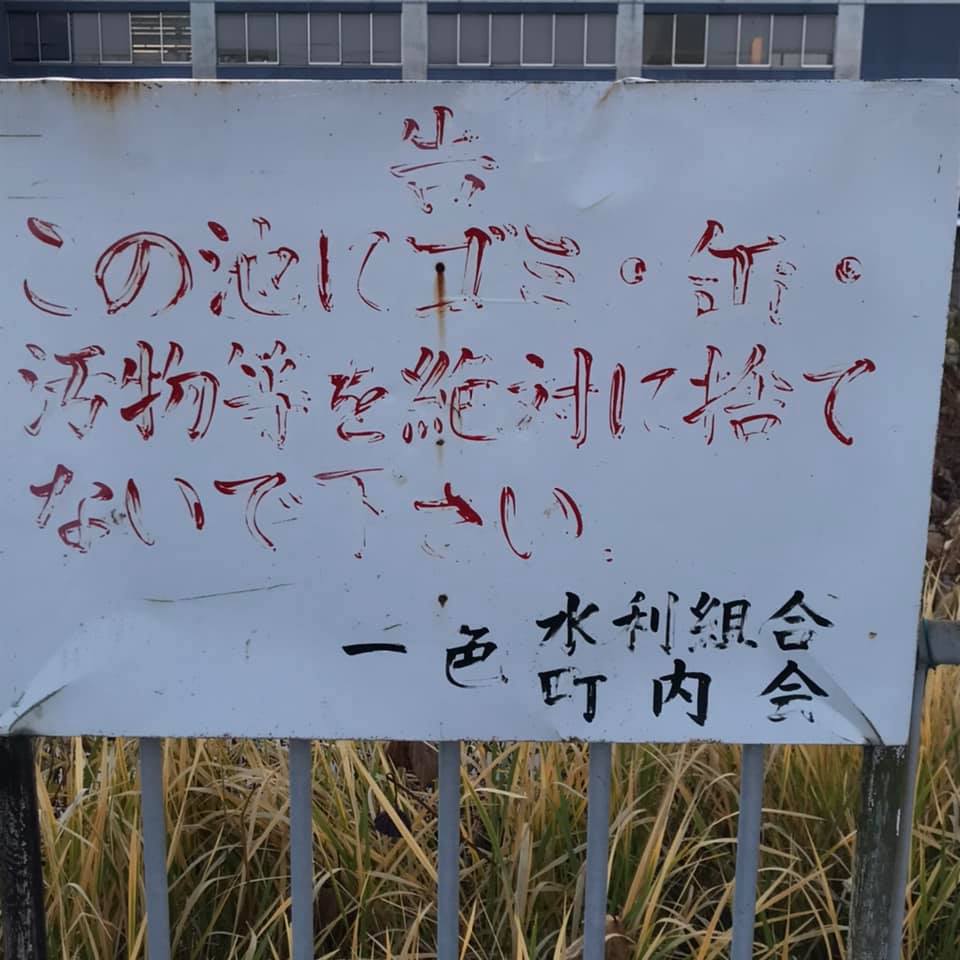 告
この池にゴミ・缶・
汚物等を絶対に捨て
ないで下さい。
一色 水利組合
町内会